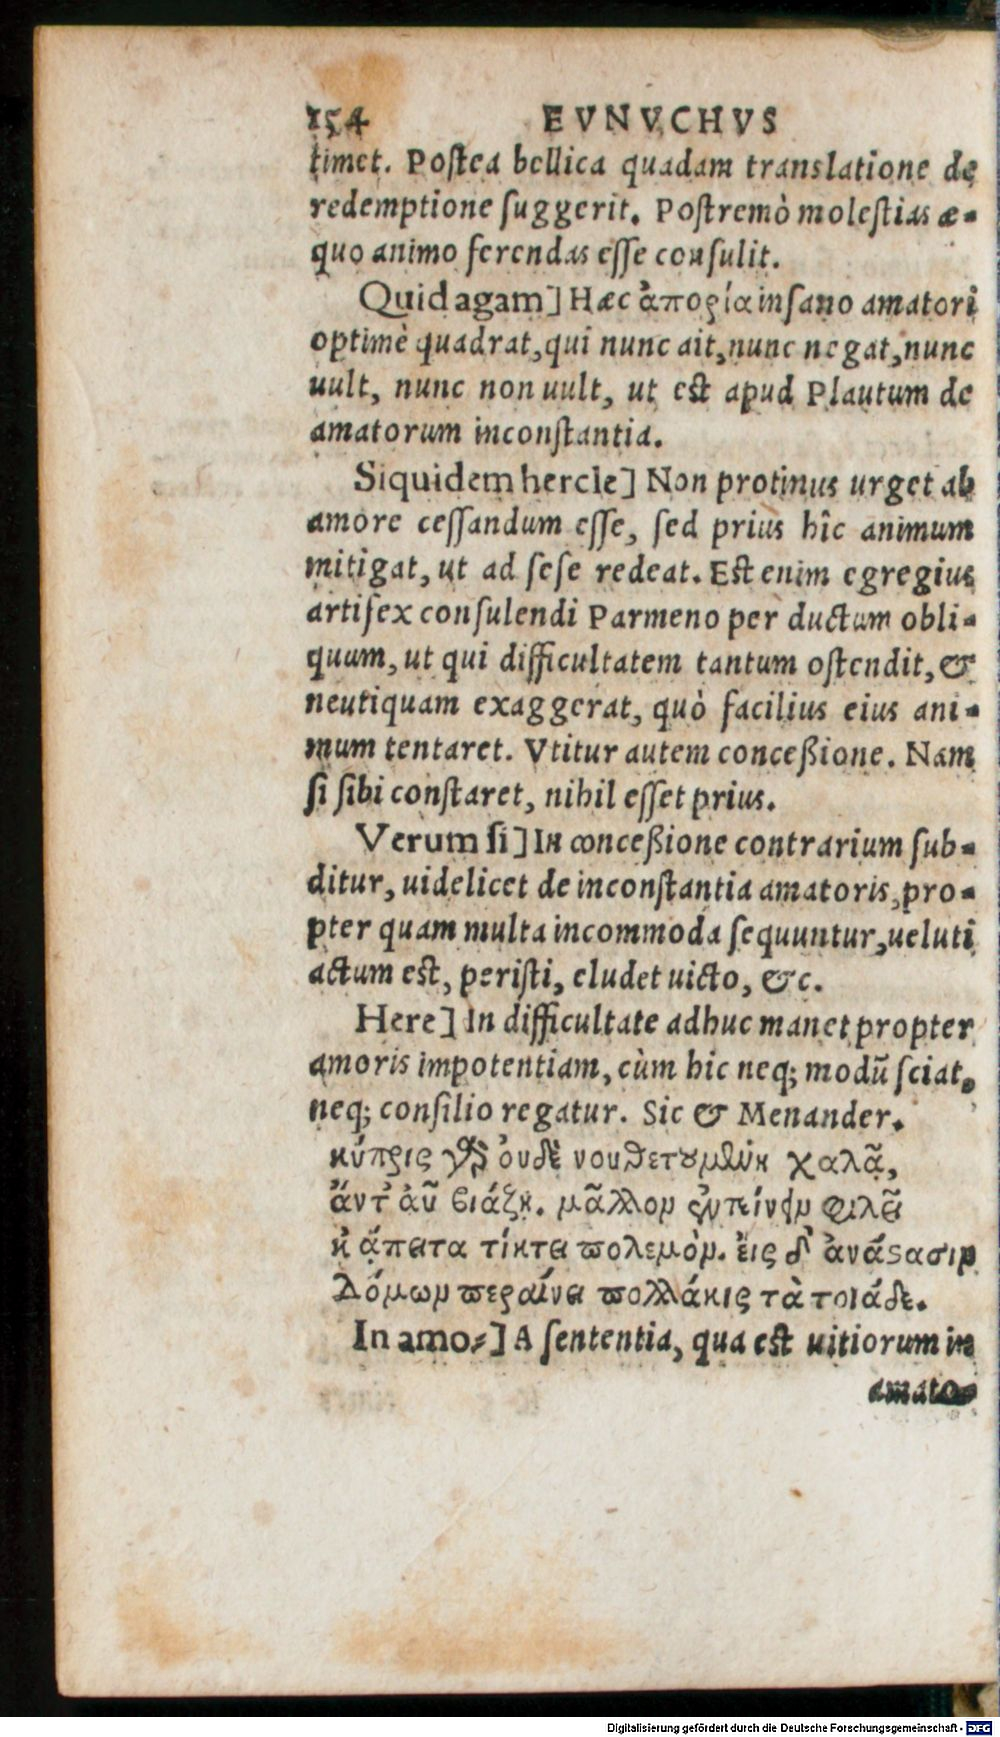 154 EVNVCHVS
timet. Postea bellica quadam translatione de
redemptione suggerit. Postremò molestias æ-
quo animo ferendas esse consulit.
Quid agam] Hæc ἀπορία insano amatori
optimè quadrat, qui nunc ait, nunc negat, nunc
uult, nunc non uult, ut est apud Plautum de
amatorum inconstantia.
Siquidem hercle] Non protinus urget ab
amore cessandum esse, sed prius hîc animum
mitigat, ut ad sese redeat. Est enim egregius
artifex consulendi Parmeno per ductum obli-
quum, ut qui difficultatem tantum ostendit, &
neutiquam exaggerat, quò facilius eius ani-
mum tentaret. Vtitur autem conceßione. Nam
si sibi constaret, nihil esset prius.
Verum si] In conceßione contrarium sub-
ditur, uidelicet de inconstantia amatoris, pro-
pter quam multa incommoda sequuntur, ueluti
actum est, peristi, eludet uicto, &c.
Here] In difficultate adhuc manet propter
amoris impotentiam, cùm hic neq; modũ sciat,
neq; consilio regatur. Sic & Menander.
κύπρις γὰρ ὀυδὲ νουθετουμένη χαλᾷ,
ἄντ ἀῦ βιάζῃ. μᾶλλον φιλεῖ
κἄπειτα τίκτει πολεμὸν. ἔις δ' ἀνάστασιν
Δόμων περαίνει πολλάκις τὰ τοιάδε.
In amo⸗] A sententia, qua est uitiorum in
amato-
Digitalisierung gefördert durch die Deutsche Forschungsgemeinschaft - DFG